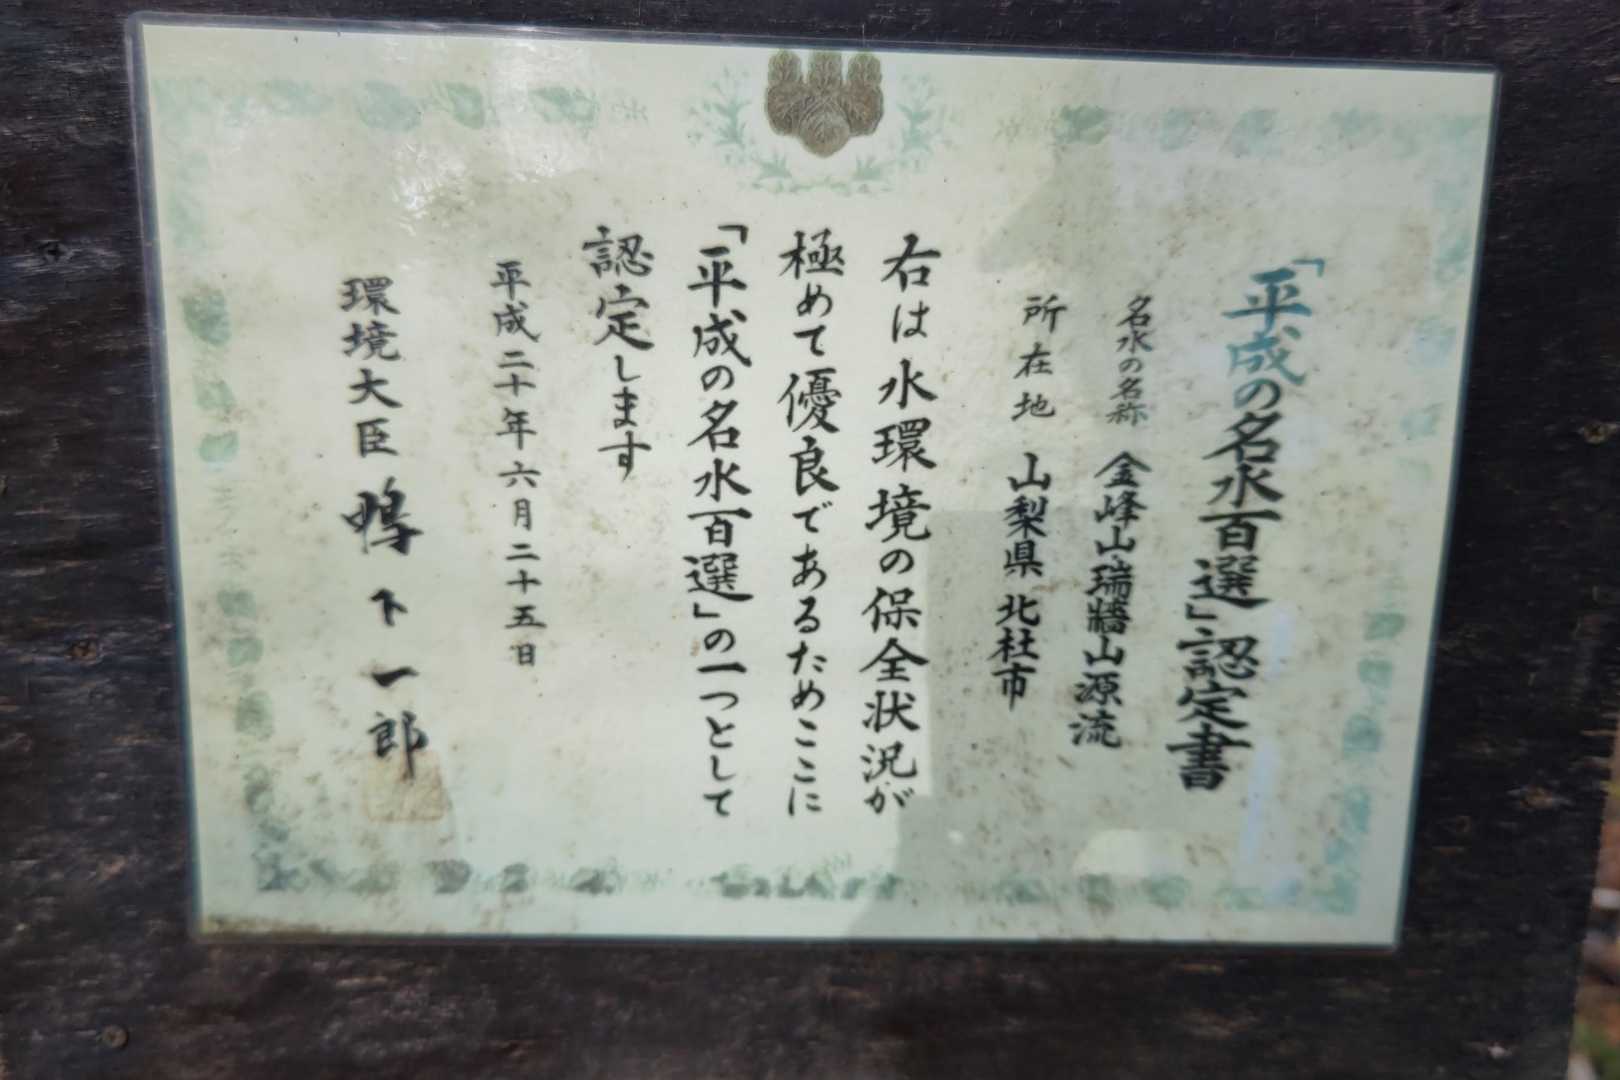 「平成の名水百選」認定書
名水の名称 金峰山瑞牆山源流
所在地 山梨県北杜市
右は水環境の保全状況が
極めて優良であるためここに
「平成の名水百選」の一つとして
認定します
平成二十年六月二十五日
環境大臣 鴨下一郎